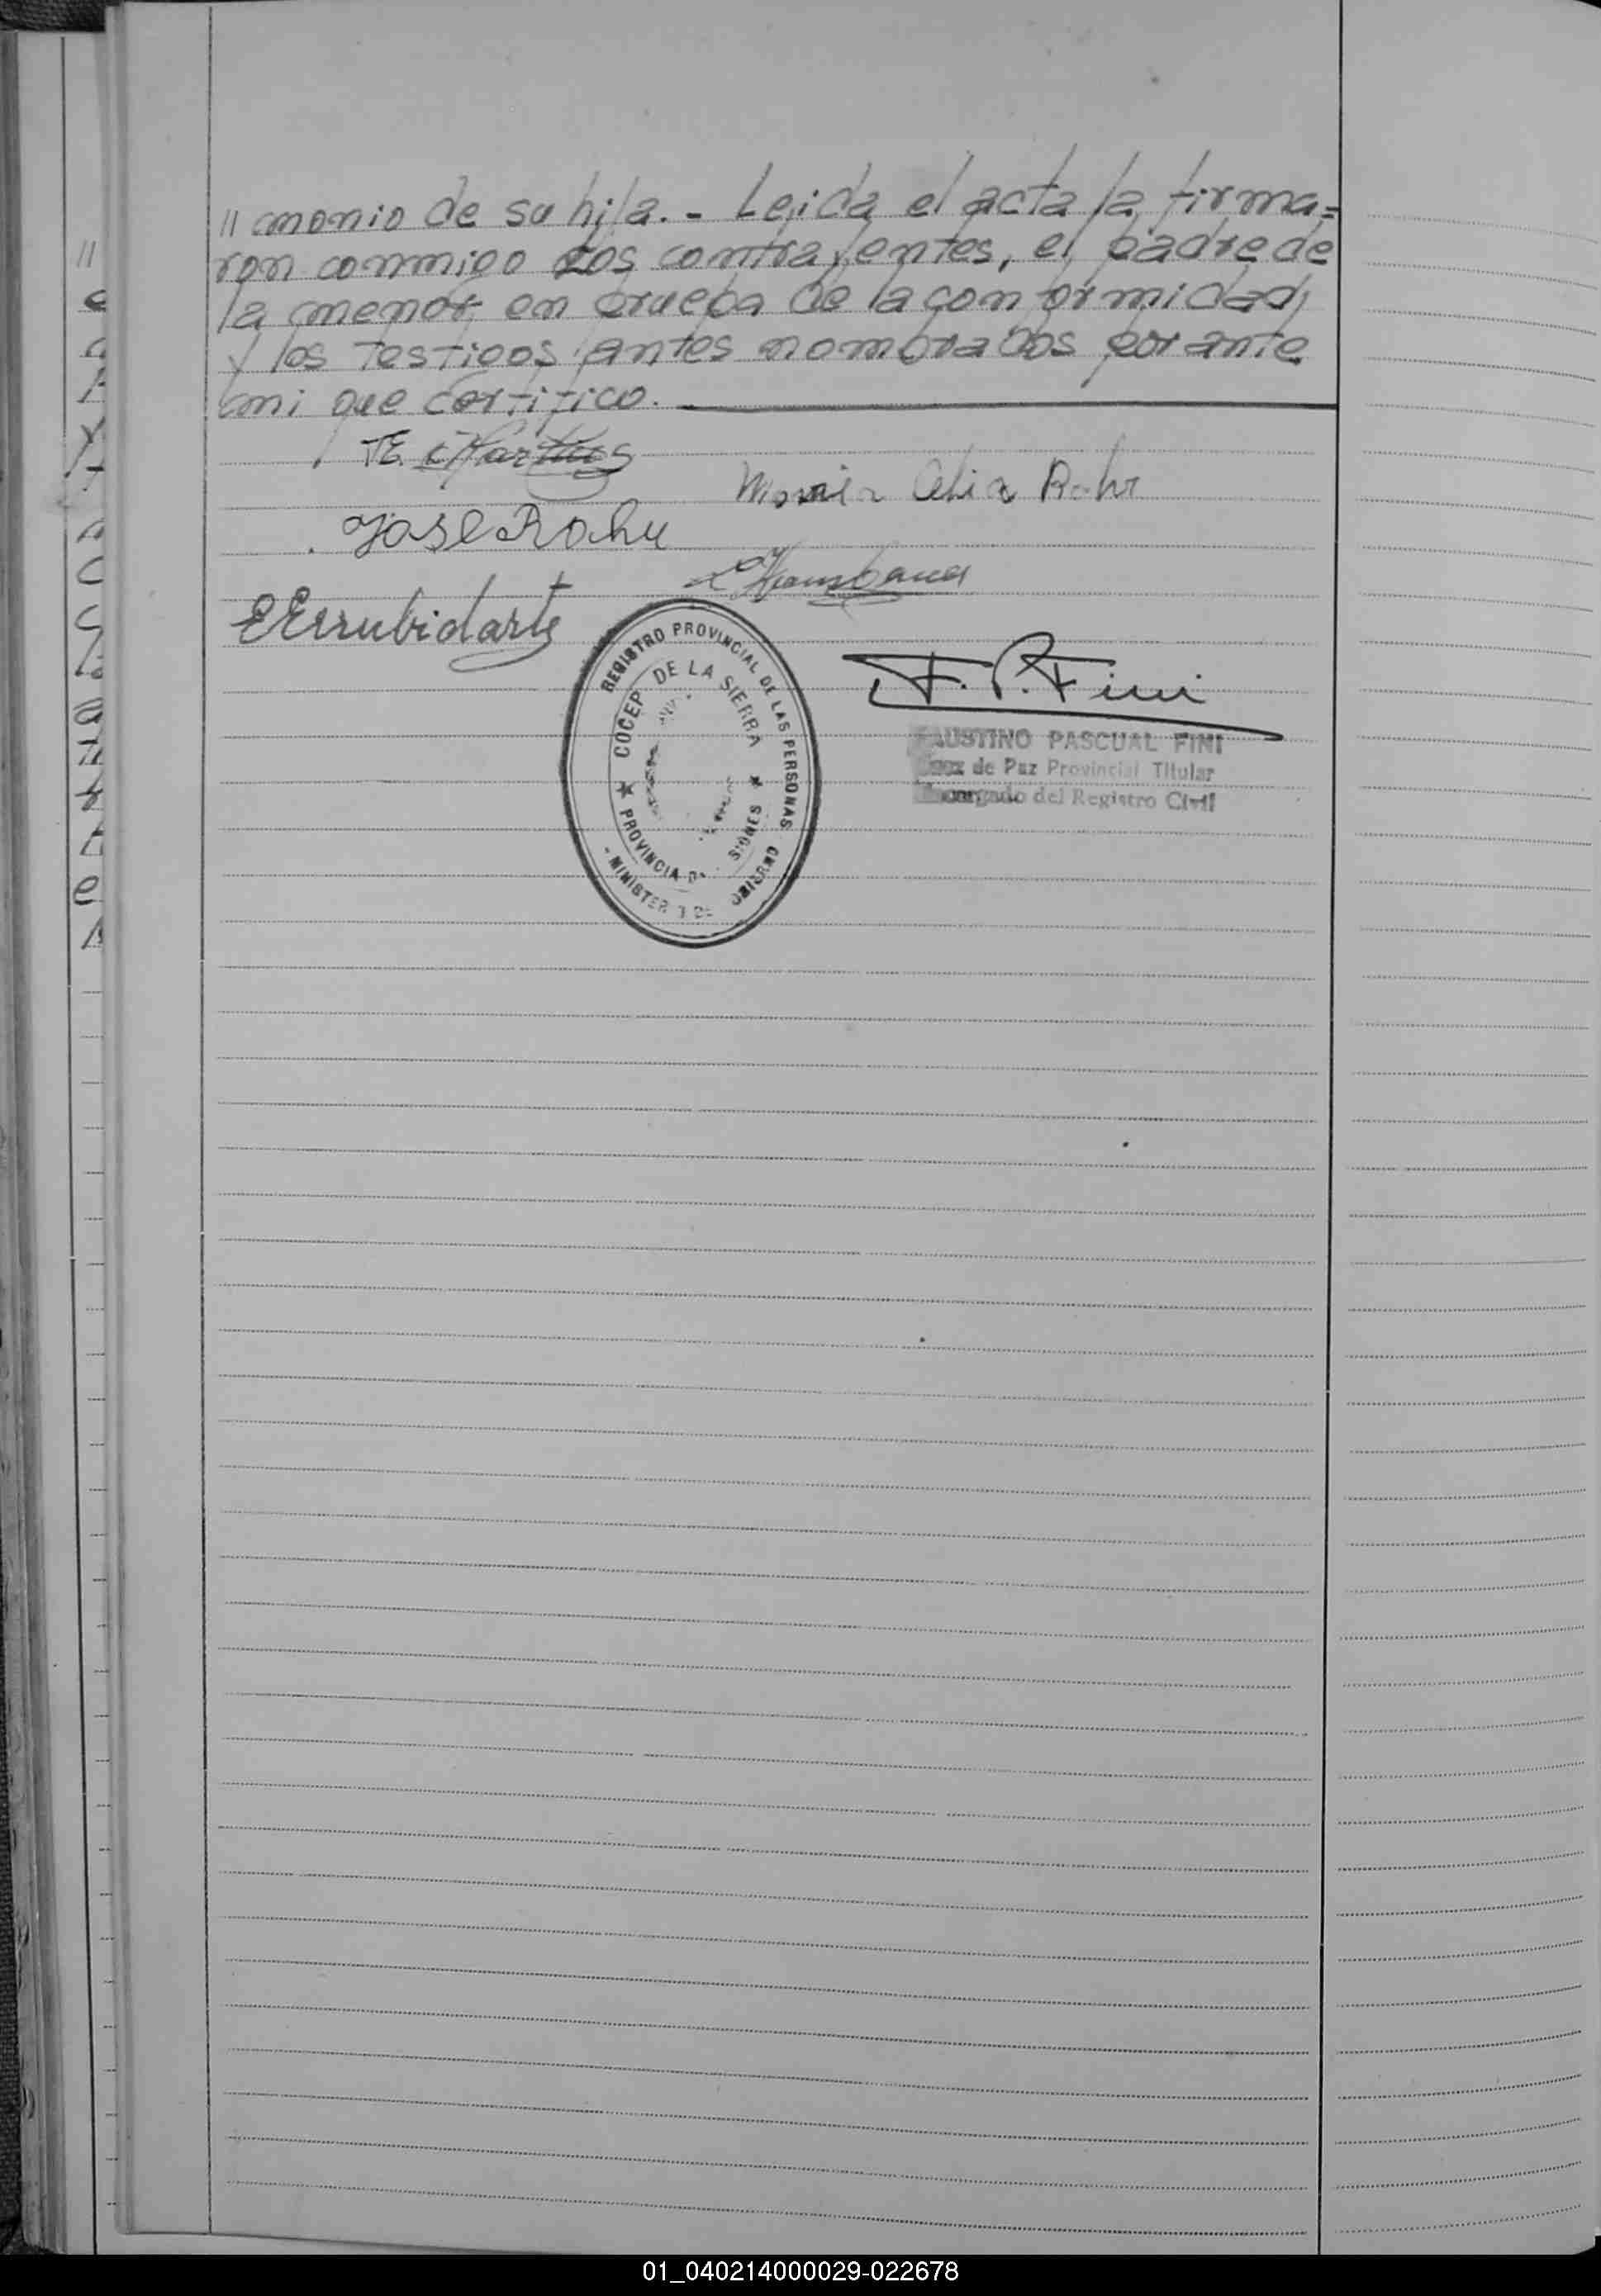 // monio de su hija. - Leida el acta la firma=
ron conmigo los contrayentes, el padre de
la menor en prueba de la conformidad,
y los testigos antes nombrados por ante
mi que certifico.
TE.
Maria Celia Rohr
Jose Rohr
EErrubidarte
F. P. Fini
REGISTRO PROVINCIAL DE LAS PERSONAS
COCEP. DE LA SIERRA
PROVINCIA DE SIONES
MINISTER DE
FAUSTINO PASCUAL FINI
Juez de Paz Provincial Titular
Encargado del Registro Civil
01_040214000029-022678